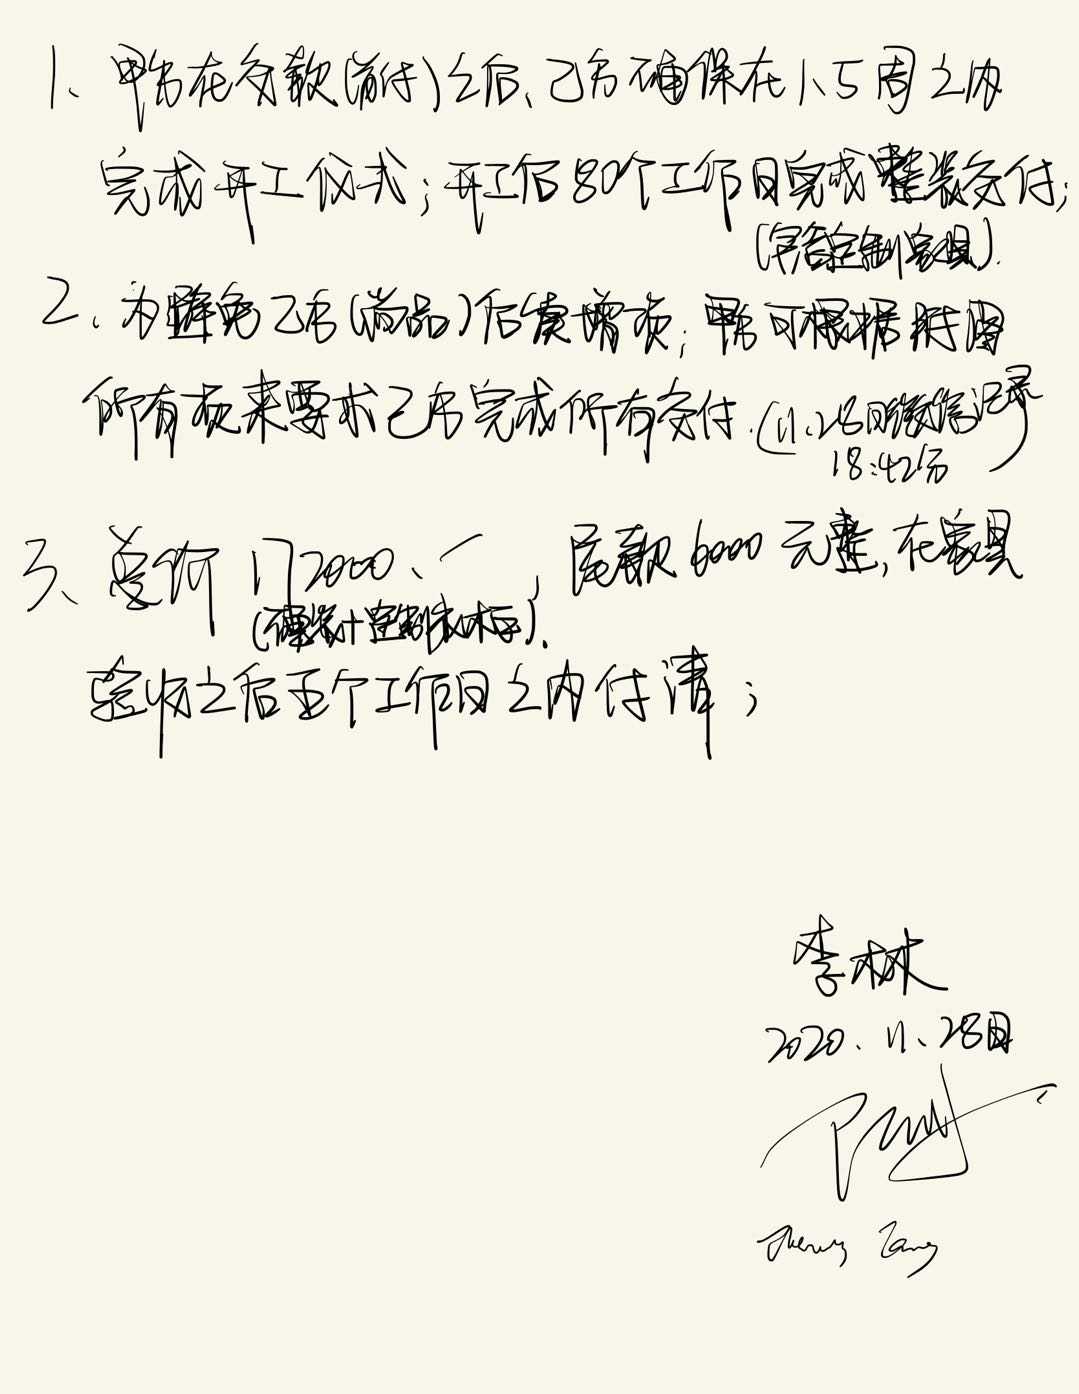 1、甲方在交款(首付)之后、乙方确保在1.5周之内
完成开工仪式;开工后80个工作日完成整装交付;
(定制家具).
2、为避免乙方(尚品)后续增项;甲方可根据
所有 来要求乙方完成所有交付.(11.28日微信记录
18:42分)
3、总价172000、一,尾款6000元整,在家具
(硬装+定制).
验收之后五个工作日之内付清;
李林
2020、11、28日